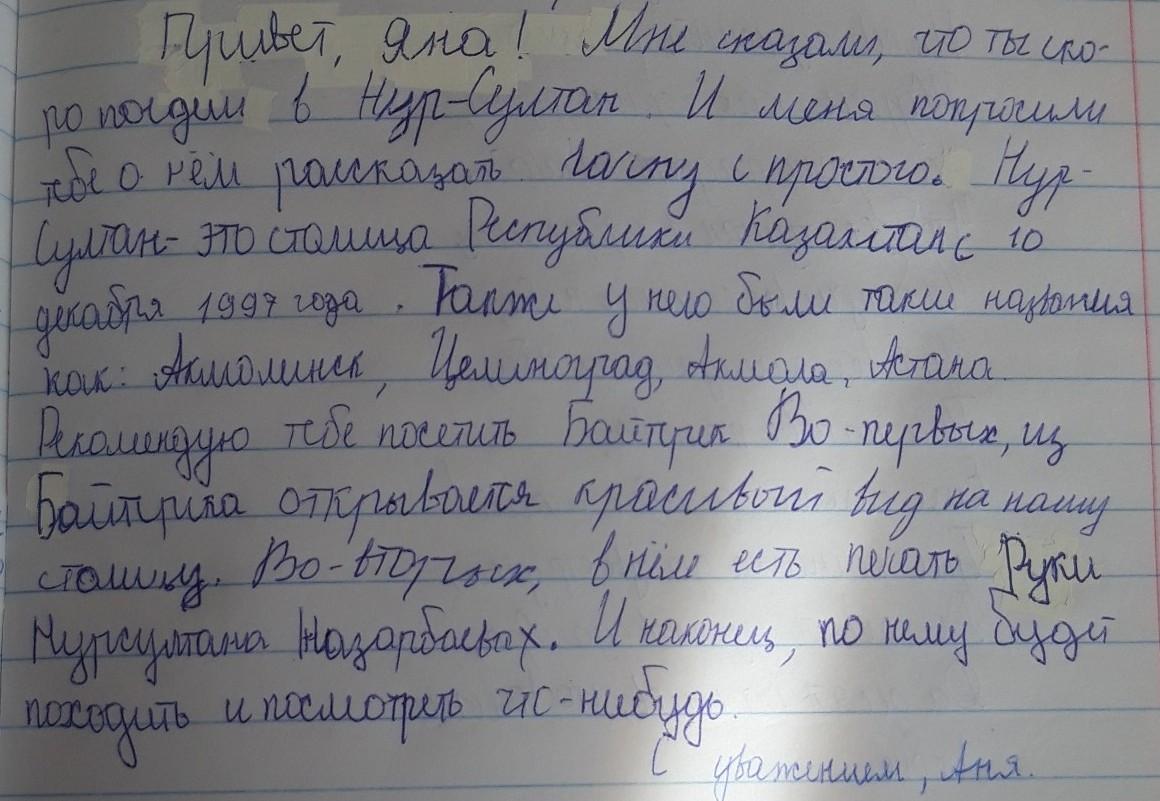 Привет, Яна! Мне сказали, что ты ско-
ро поедим в Нур-Султан. И меня попросили
тебе о нём рассказать. Начну с простого. Нур-
Султан- это столица Республики Казахстан с 10
декабря 1997 года. Также у него были такие названия
как: Акмолинск, Целиноград, Акмола, Астана.
Рекомендую тебе посетить Байтирек Во-первых, из
Байтирика открывается красивый вид на нашу
столицу. Во-вторых, в нём есть печать Руки
Нурсултана Назарбаевых. И наконец, по нему будет
походить и посмотреть что-нибудь.
С уважением, Аня.